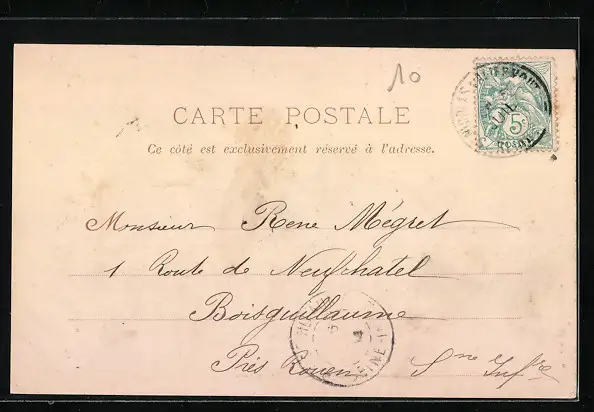 10
CARTE POSTALE
Ce côté est exclusivement réservé à l'adresse.
5c
Monsieur Rene Mégret
1 Route de Neufchatel
Boisguillaume
Près Rouen Sne Infre